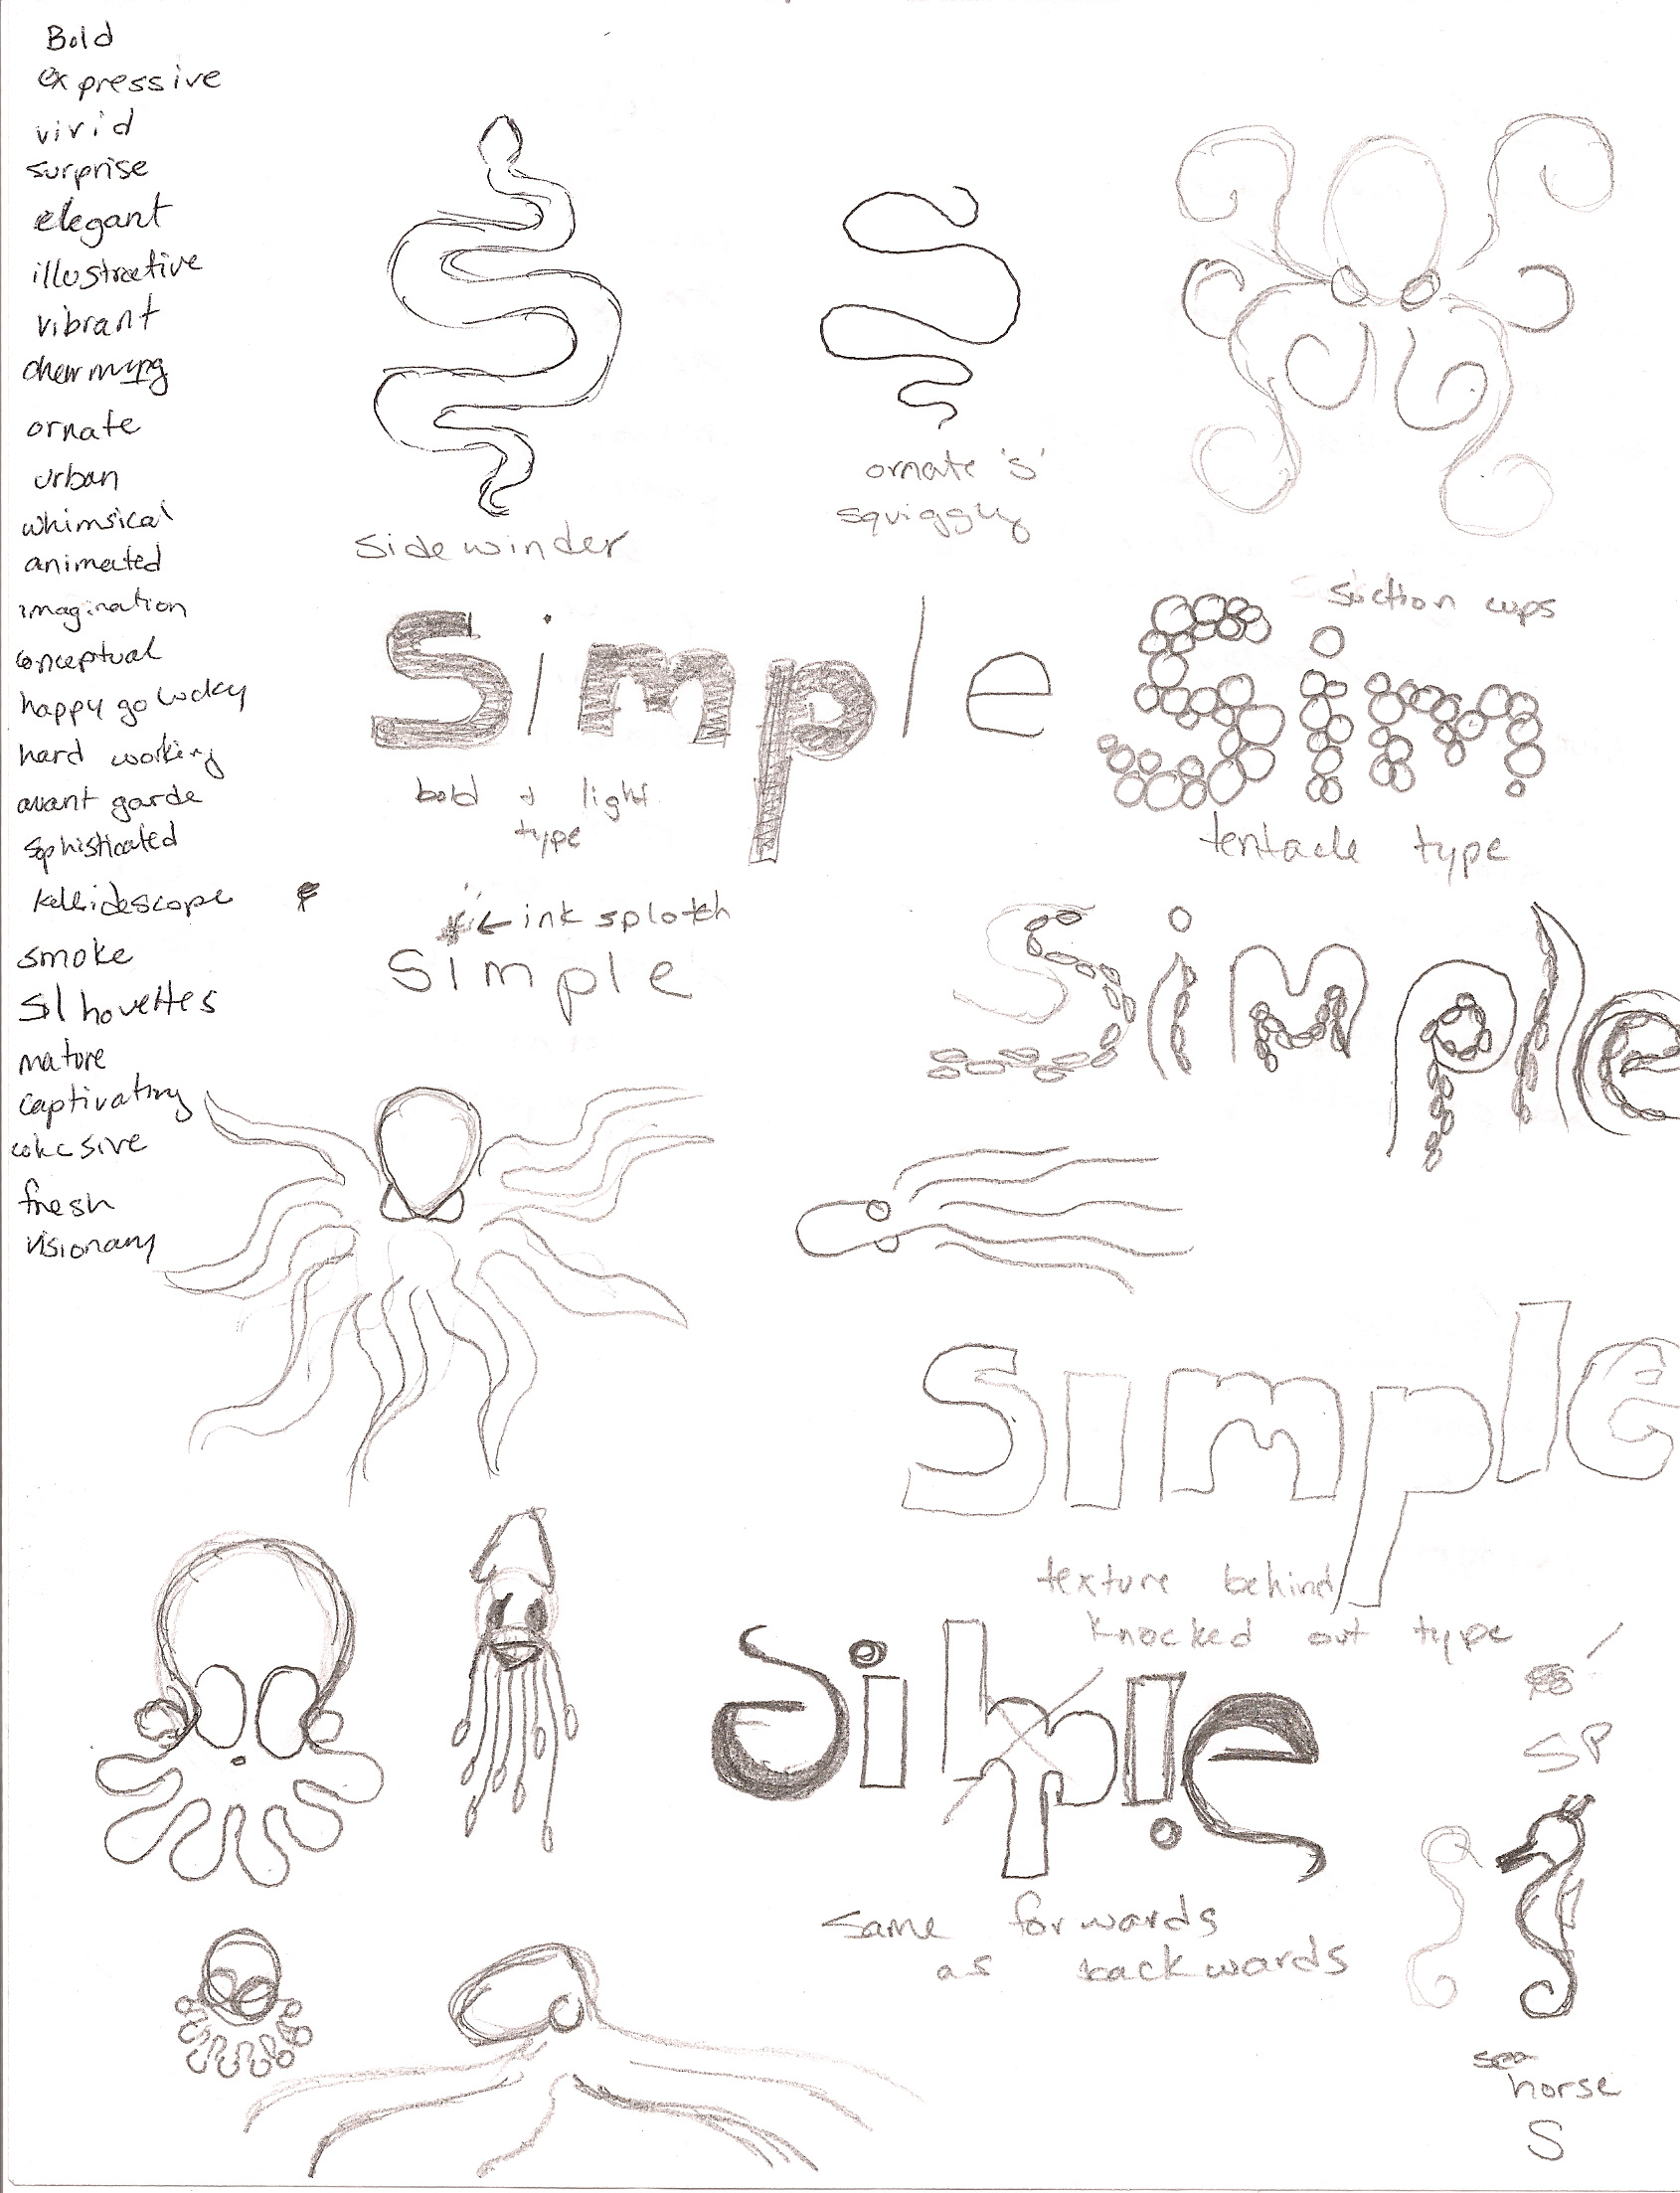 Bold
expressive
vivid
surprise
elegant
illustrative
vibrant
charming
ornate
urban
whimsical
animated
imagination
conceptual
happy go lucky
hard working
avant garde
sophisticated
kelleidescope
smoke
silhouettes
mature
captivating
cohesive
fresh
visionary
side winder
ornate 's'
squiggly
suction cups
Simple
bold + light
type
Sim
tentacle type
ink splotch
Simple
Simple
Simple
texture behind
knocked out type
Simple
same forwards
as backwards
SP
sea
horse
S